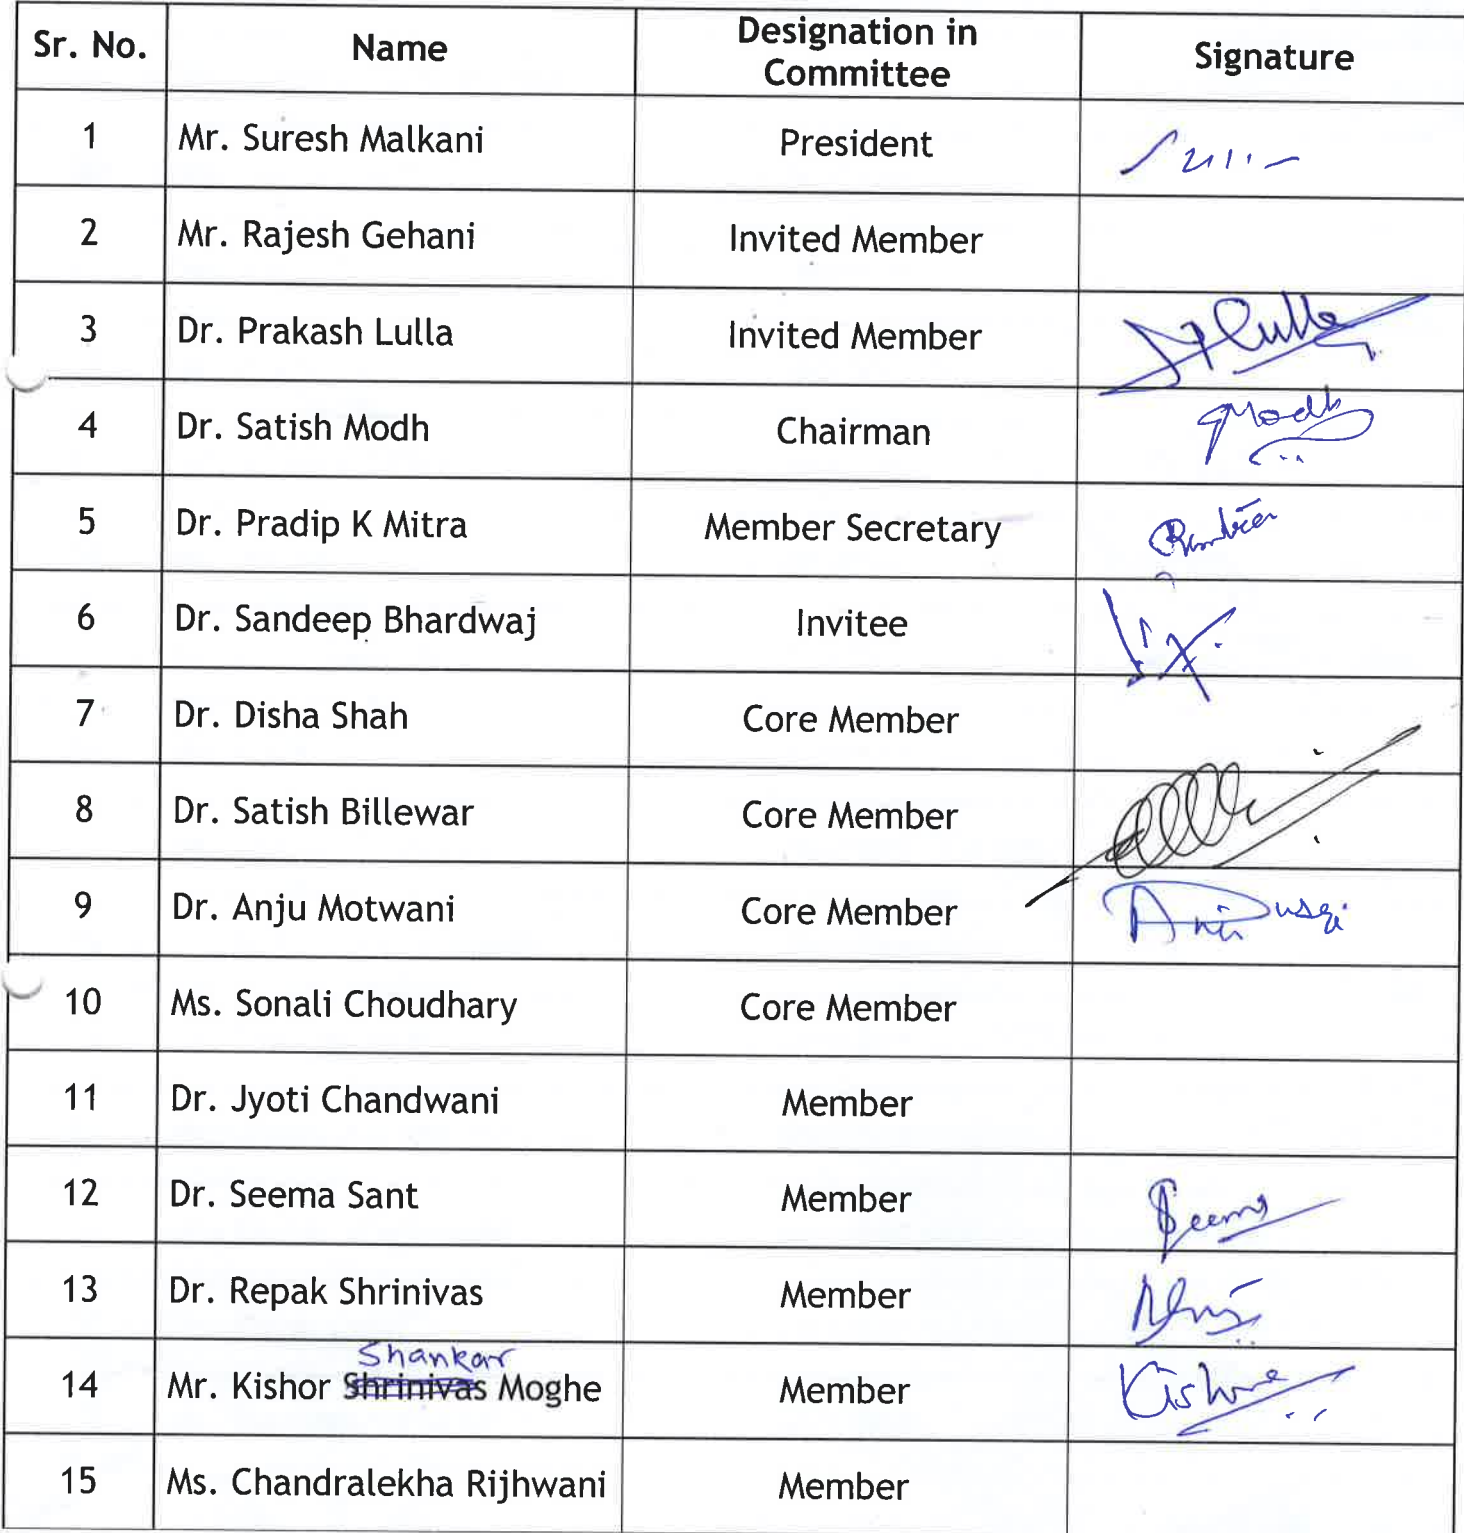 Sr. No. Name Designation in Committee Signature
1 Mr. Suresh Malkani President
2 Mr. Rajesh Gehani Invited Member
3 Dr. Prakash Lulla Invited Member Lulla
4 Dr. Satish Modh Chairman Modh
5 Dr. Pradip K Mitra Member Secretary
6 Dr. Sandeep Bhardwaj Invitee
7 Dr. Disha Shah Core Member
8 Dr. Satish Billewar Core Member
9 Dr. Anju Motwani Core Member
10 Ms. Sonali Choudhary Core Member
11 Dr. Jyoti Chandwani Member
12 Dr. Seema Sant Member Seema
13 Dr. Repak Shrinivas Member
Shankar
14 Mr. Kishor Shrinivas Moghe Member Kishore
15 Ms. Chandralekha Rijhwani Member